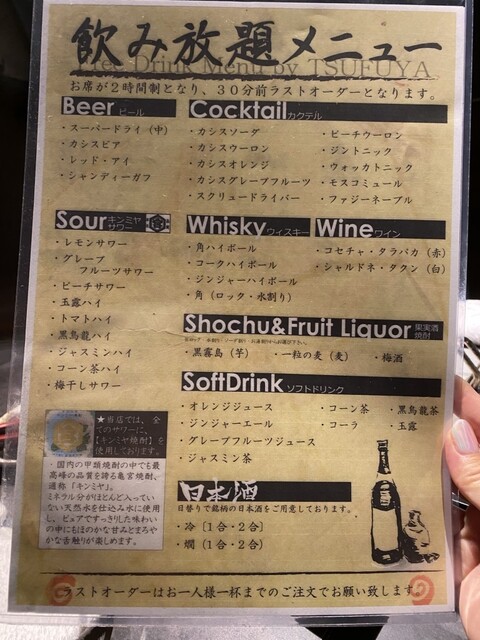 飲み放題メニュー
Free Drink Menu by TSUFUYA
お席が2時間制となり、30分前ラストオーダーとなります。
Beer ビール
・スーパードライ（中）
・カシスビア
・レッド・アイ
・シャンディーガフ
Cocktail カクテル
・カシスソーダ
・カシスウーロン
・カシスオレンジ
・カシスグレープフルーツ
・スクリュードライバー
・ピーチウーロン
・ジントニック
・ウォッカトニック
・モスコミュール
・ファジーネーブル
Sour キンミヤサワー
・レモンサワー
・グレープ
フルーツサワー
・ピーチサワー
・玉露ハイ
・トマトハイ
・黒烏龍ハイ
・ジャスミンハイ
・コーン茶ハイ
・梅干しサワー
Whisky ウィスキー
・角ハイボール
・コークハイボール
・ジンジャーハイボール
・角（ロック・水割り）
Wine ワイン
・コセチャ・タラパカ（赤）
・シャルドネ・タクン（白）
Shochu&Fruit Liquor 果実酒 焼酎
・黒霧島（芋）
・一粒の麦（麦）
・梅酒
SoftDrink ソフトドリンク
・オレンジジュース
・ジンジャーエール
・グレープフルーツジュース
・ジャスミン茶
・コーン茶
・コーラ
・黒烏龍茶
・玉露
★当店では、全
てのサワーに、
【キンミヤ焼酎】を
使用しております。
・国内の甲類焼酎の中でも最
高峰の品質を誇る亀宮焼酎、
通称「キンミヤ」。
ミネラル分がほとんど入ってい
ない天然水を仕込み水に使用
し、ピュアですっきりした味わい
の中にもほのかな甘みとまろや
かな舌触りが楽しめます。
日本酒
日替りで銘柄の日本酒をご用意しております。
・冷［1合・2合］
・燗［1合・2合］
ラストオーダーはお一人様一杯までのご注文でお願い致します。